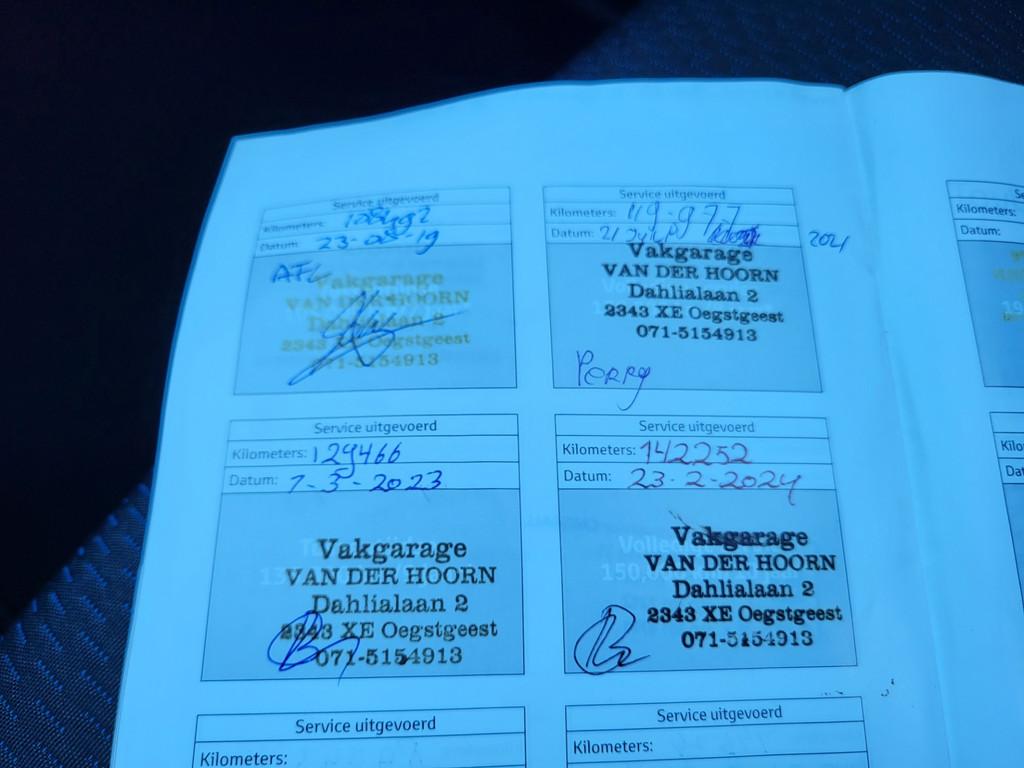 Service uitgevoerd
Kilometers:
Datum: 23-08-19
AFL
Vakgarage
VAN DER HOORN
Dahlialaan 2
2343 XE Oegstgeest
071-5154913
Service uitgevoerd
Kilometers: 119.977
Datum: 21 July 2021
Vakgarage
VAN DER HOORN
Dahlialaan 2
2343 XE Oegstgeest
071-5154913
Perry
Service uitgevoerd
Kilometers: 129466
Datum: 7-3-2023
Vakgarage
VAN DER HOORN
Dahlialaan 2
2343 XE Oegstgeest
071-5154913
Service uitgevoerd
Kilometers: 142252
Datum: 23-2-2024
Vakgarage
VAN DER HOORN
Dahlialaan 2
2343 XE Oegstgeest
071-5154913
Service uitgevoerd
Kilometers:
Service uitgevoerd
Kilometers:
Kilometers:
Datum: